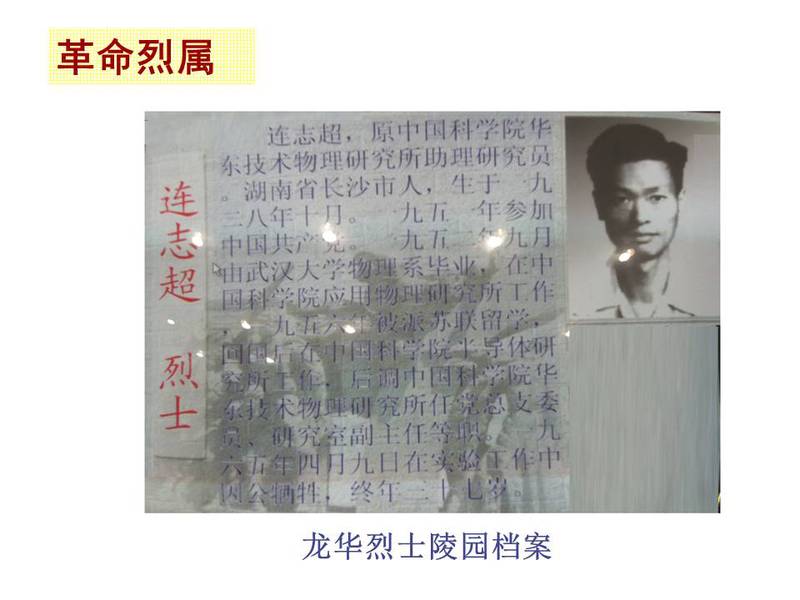 革命烈属
连志超 烈士
连志超，原中国科学院华
东技术物理研究所助理研究员
。湖南省长沙市人，生于一九
二八年十月。一九五一年参加
中国共产党。一九五三年九月
由武汉大学物理系毕业，在中
国科学院应用物理研究所工作
，一九五六年被派苏联留学，
回国后在中国科学院半导体研
究所工作，后调中国科学院华
东技术物理研究所任党总支委
员、研究室副主任等职。一九
六五年四月九日在实验工作中
因公牺牲，终年三十七岁。
龙华烈士陵园档案